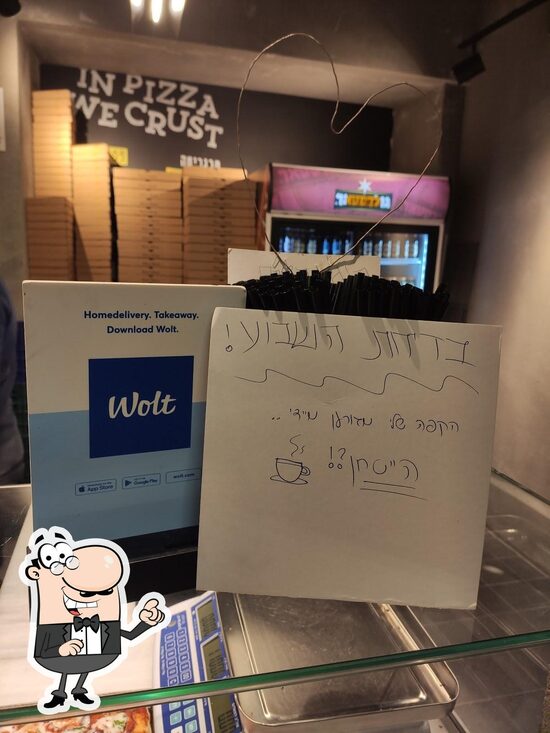 IN PIZZA
WE CRUST
Homedelivery. Takeaway.
Download Wolt.
Wolt
App Store
Google Play
wolt.com
בדיחת השבוע!
הקפה שלי מגורען מידי ..
הייטחן?!